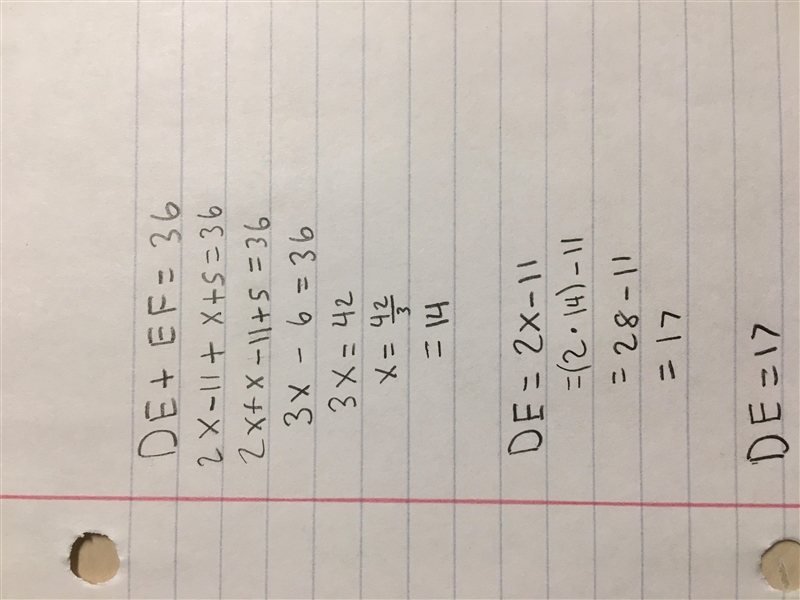 DE + EF = 36
2x - 11 + x + 5 = 36
2x + x - 11 + 5 = 36
3x - 6 = 36
3x = 42
x = 42/3
= 14
DE = 2x - 11
= (2 · 14) - 11
= 28 - 11
= 17
DE = 17